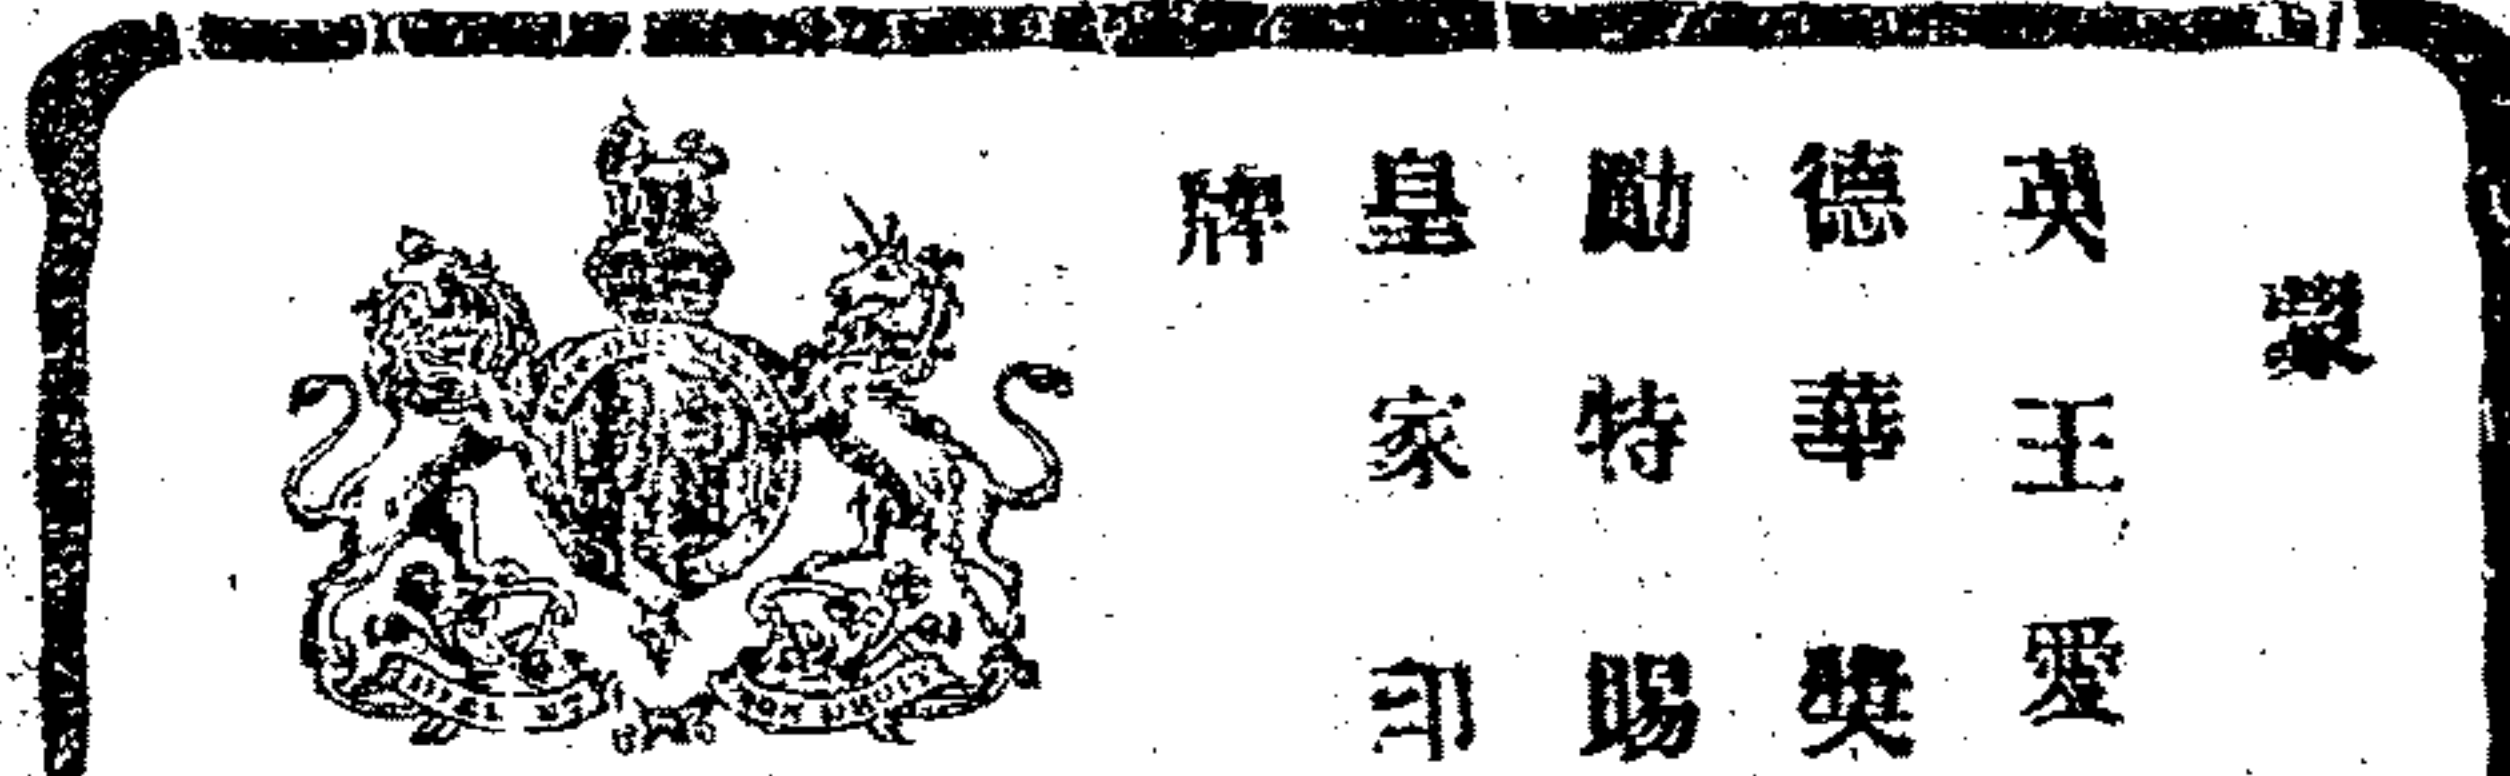 蒙
英王愛
德華獎
勵特賜
皇家印
牌